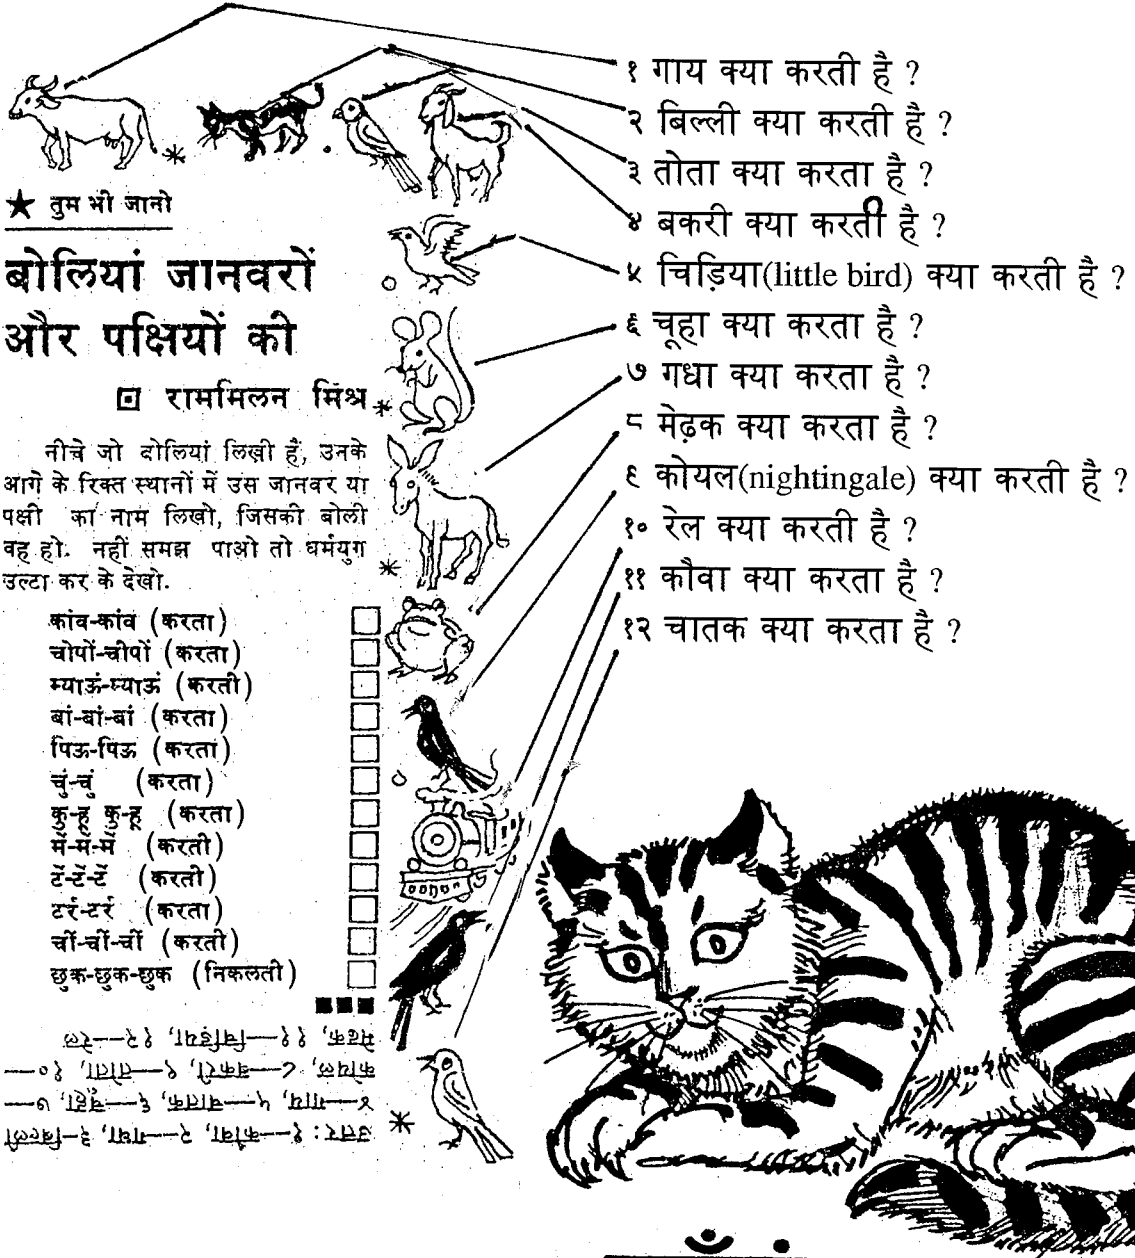 ★ तुम भी जानो
बोलियां जानवरों
और पक्षियों की
राममिलन मिश्र
नीचे जो बोलियां लिखी हैं, उनके
आगे के रिक्त स्थानों में उस जानवर या
पक्षी का नाम लिखो, जिसकी बोली
वह हो. नहीं समझ पाओ तो धर्मयुग
उल्टा कर के देखो.
कांव-कांव (करता)
चीपों-चीपों (करता)
म्याऊं-म्याऊं (करती)
बां-बां-बां (करता)
पिऊ-पिऊ (करता)
चुं-चुं (करता)
कु-हू कु-हू (करता)
में-में-में (करती)
टें-टें-टें (करती)
टर्र-टर्र (करता)
चीं-चीं-चीं (करती)
छुक-छुक-छुक (निकलती)
उत्तर : १—कौवा, २—गधा, ३—बिल्ली
४—गाय, ५—चातक, ६—चूहा, ७—
कोयल, ८—बकरी, ९—तोता, १०—
मेढक, ११—चिड़िया, १२—रेल
१ गाय क्या करती है ?
२ बिल्ली क्या करती है ?
३ तोता क्या करता है ?
४ बकरी क्या करती है ?
५ चिड़िया(little bird) क्या करती है ?
६ चूहा क्या करता है ?
७ गधा क्या करता है ?
८ मेढ़क क्या करता है ?
९ कोयल(nightingale) क्या करता है ?
१० रेल क्या करती है ?
११ कौवा क्या करता है ?
१२ चातक क्या करता है ?